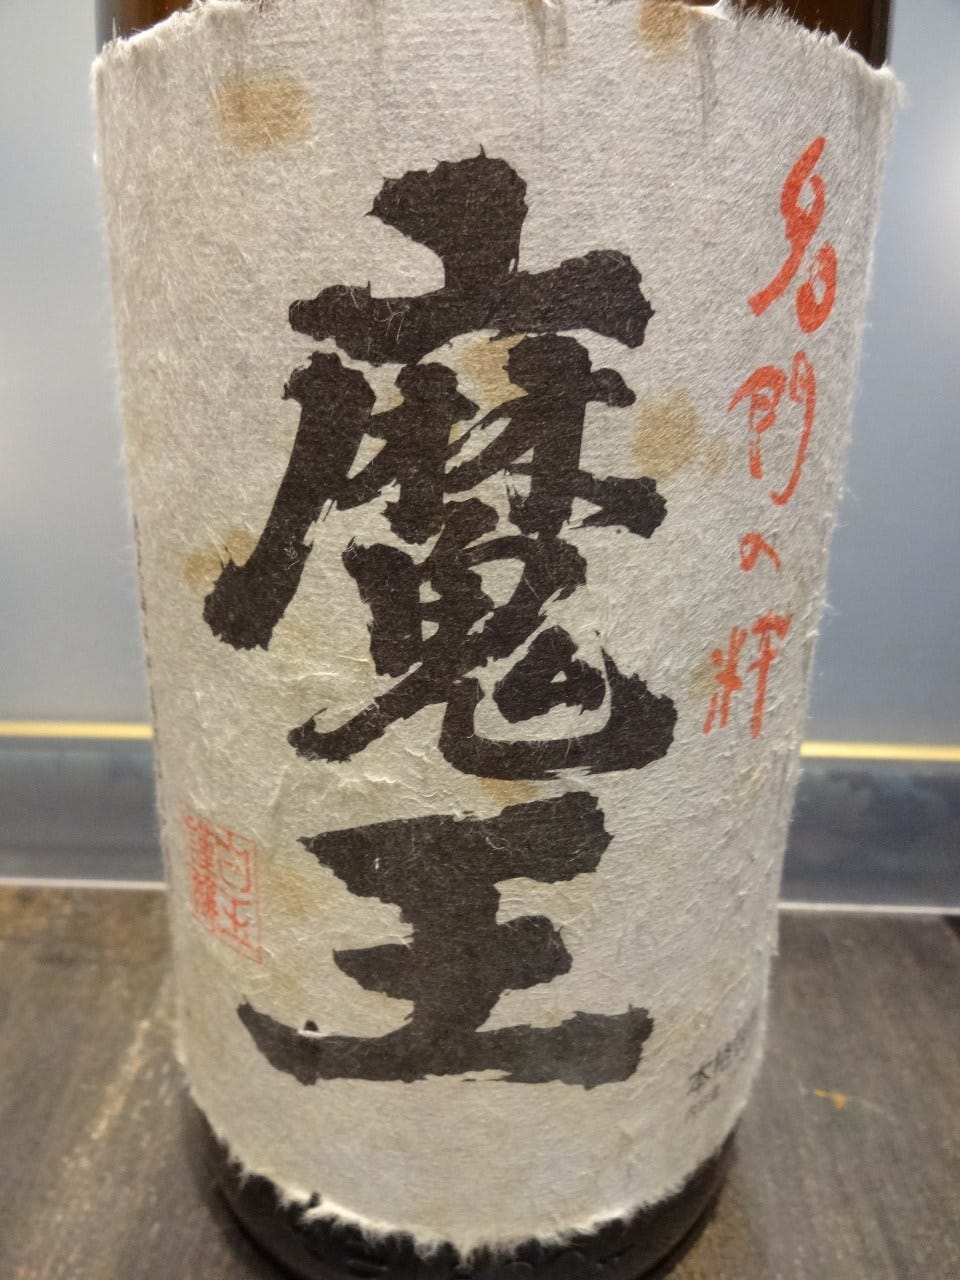 名門の粋
魔王
本格